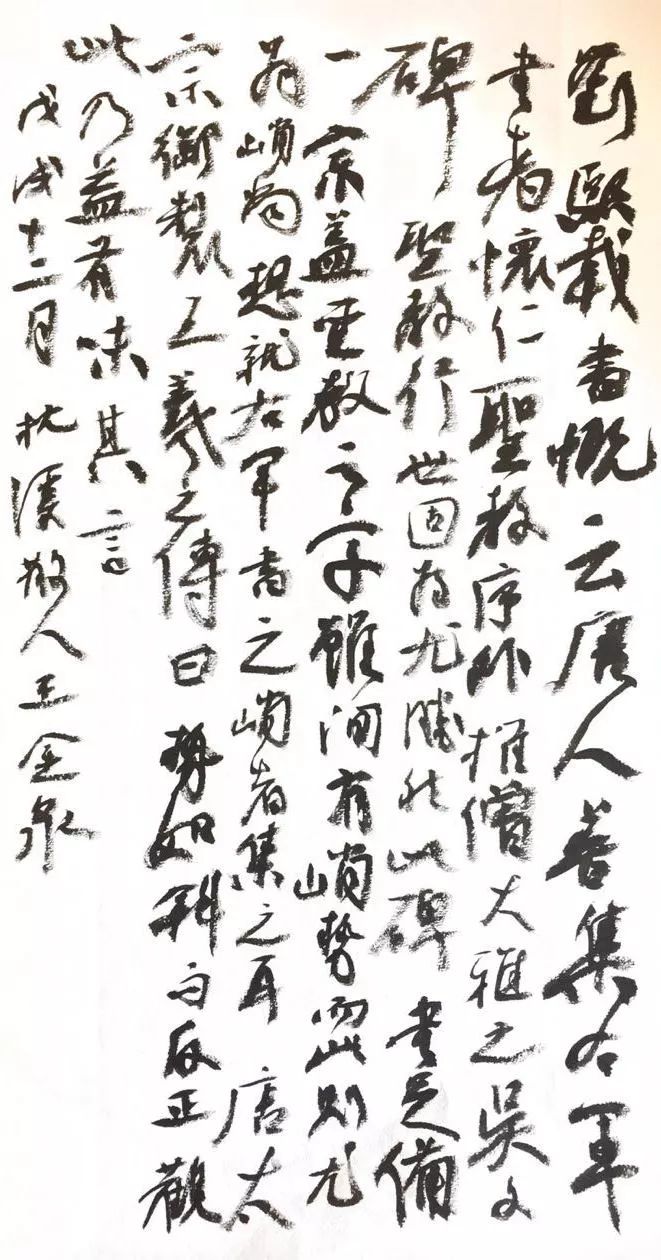 劉熙載書慨云唐人善集右軍
書者懷仁聖教序外推僧大雅之吳文
碑聖教行世固為尤勝然此碑書足備
一宗蓋聖教之字雖間有峭勢而此則尤
為峭尚想就右軍書之峭者集之耳唐太
宗御製王羲之傳曰勢如斜而反正觀
此乃益有味其言
戊戌十二月枕溪散人王金泉